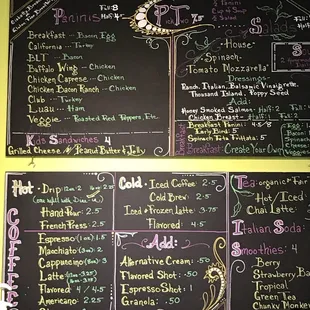 Paninis Full: 8
Half: 4
Breakfast - Bacon, Egg
California - Turkey
BLT - Bacon
Buffalo Wing - Chicken
Chicken Caprese - Chicken
Chicken Bacon Ranch - Chicken
Club - Turkey
Luau - Ham
Veggie - Roasted Red Peppers, Etc.
Kids Sandwiches 4
Grilled Cheese or Peanut Butter & Jelly
Pick Two 7.5
½ Panini
Cup of Soup
½ Salad
Salads
House
Spinach
Tomato Mozzarella
Dressings:
Ranch, Italian, Balsamic Vinaigrette,
Thousand Island, Poppy Seed
Add:
Honey Smoked Salmon
Breakfast Panini
Early Bird 5
Spinach Feta Frittata 5
Breakfast Create Your Own
Coffee
Hot
Drip
Hand-Pour: 2.5
French Press: 2.5
Espresso
Macchiato
Cappuccino
Latte
Flavored 4 / 4.5
Americano 2.25
Cold
Iced Coffee 2.5
Cold Brew 2.5
Iced & Frozen Latte 3.75
Flavored 4.5
Add:
Alternative Cream: .50
Flavored Shot: .50
Espresso Shot: 1
Granola: .50
Tea: organic
Hot/Iced
Chai Latte
Italian Soda:
Smoothies: 4
Berry
Strawberry
Tropical
Green Tea
Chunky Monkey